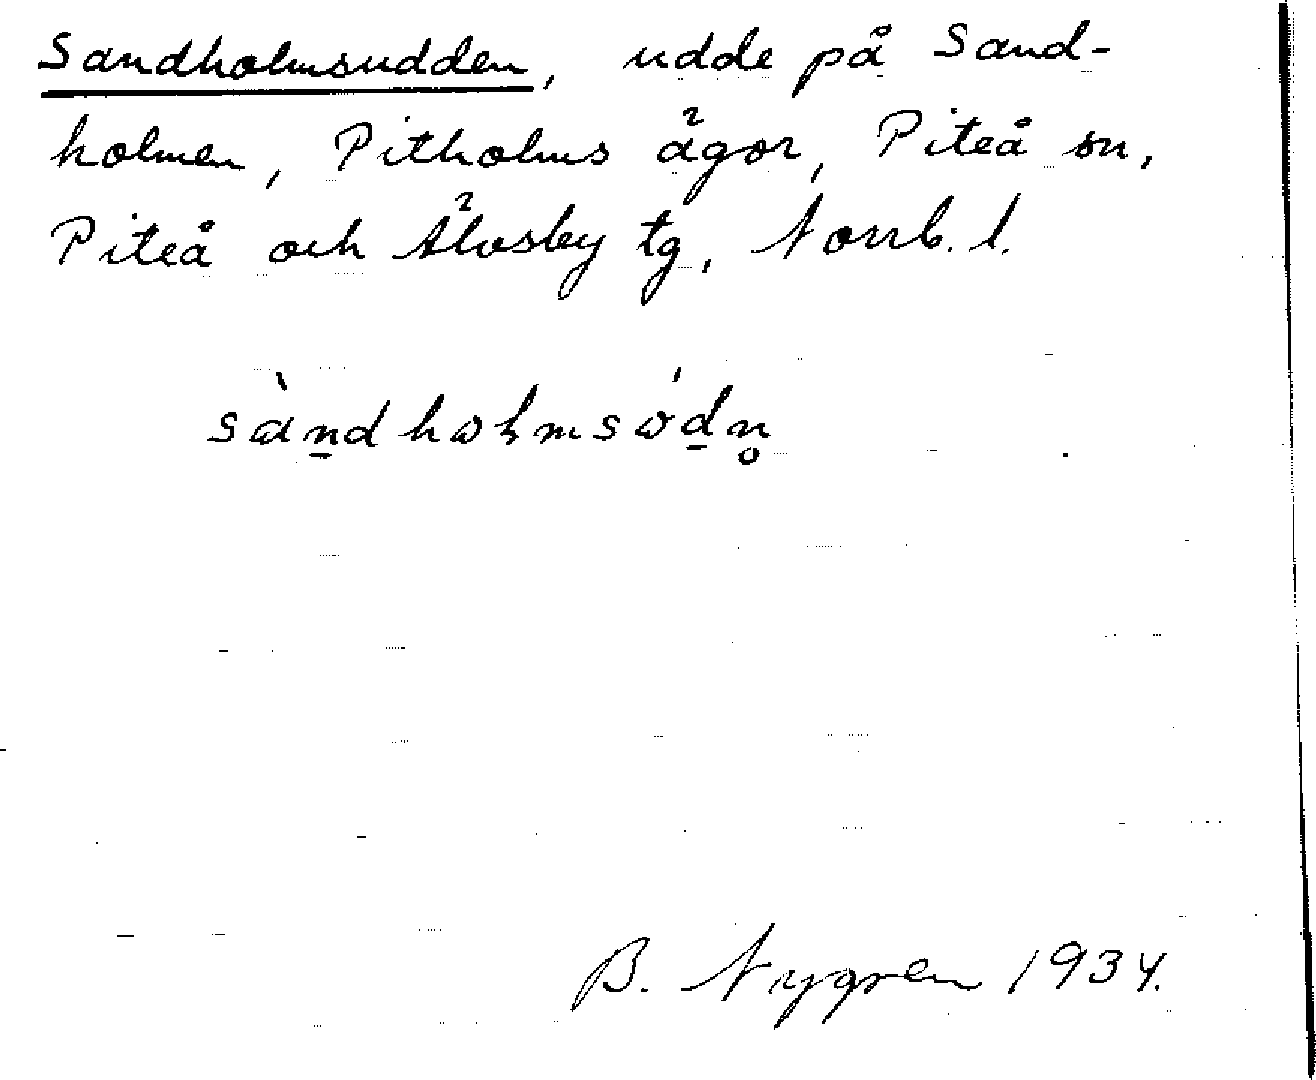 Sandholmsudden, udde på Sand-
holmen, Pitholms ägor, Piteå sn,
Piteå och Älvsby tg, Norrb. l.
sàn̲dhoɫmsód̲n̥
B. Nygren 1934.